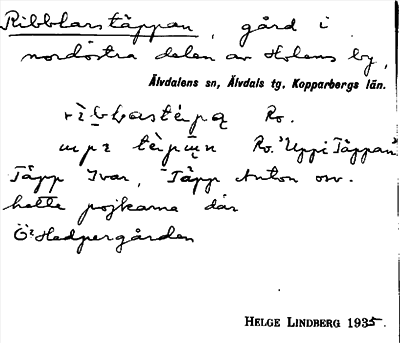 Ribblarstäppan, gård i
nordöstra delen av Holens by,
Älvdalens sn, Älvdals tg, Kopparbergs län.
Ro.
Ro. "Uppi Täppan"
Täpp Ivar, Täpp Anton osv.
hette pojkarna där
Hedpergården
HELGE LINDBERG 1935.